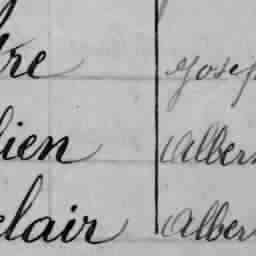 tre Josep
lien Alber
clair Alber